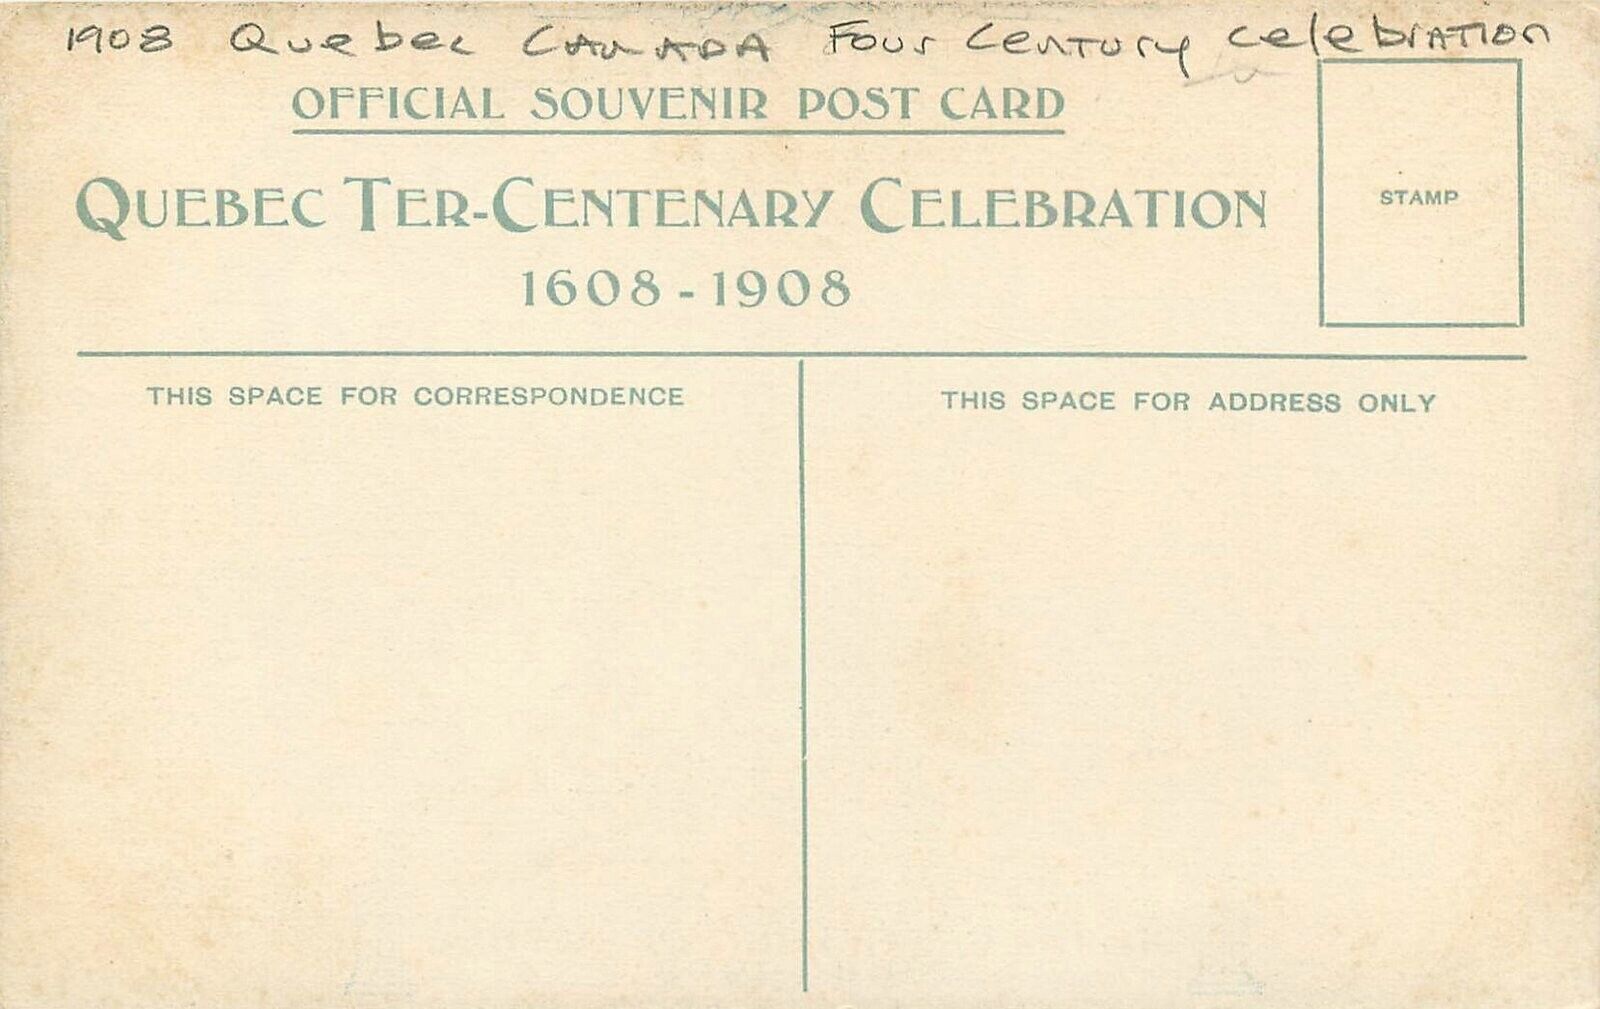 1908 Quebec CANADA Four Century celebration
OFFICIAL SOUVENIR POST CARD
QUEBEC TER-CENTENARY CELEBRATION
1608-1908
STAMP
THIS SPACE FOR CORRESPONDENCE
THIS SPACE FOR ADDRESS ONLY